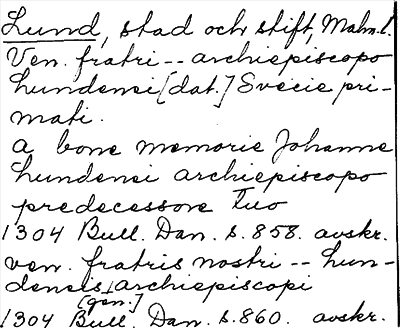 Lund, stad och stift, Malm. l.
Ven. fratri -- archiepiscopo
Lundensi [dat.] Svecie pri-
mati.
a bone memorie Johanne
Lundensi archiepiscopo
predecessore tuo
1304 Bull. Dan. s. 858. avskr.
ven. fratris nostri -- Lun-
densis archiepiscopi
[gen.]
1304 Bull. Dan. s. 860. avskr.